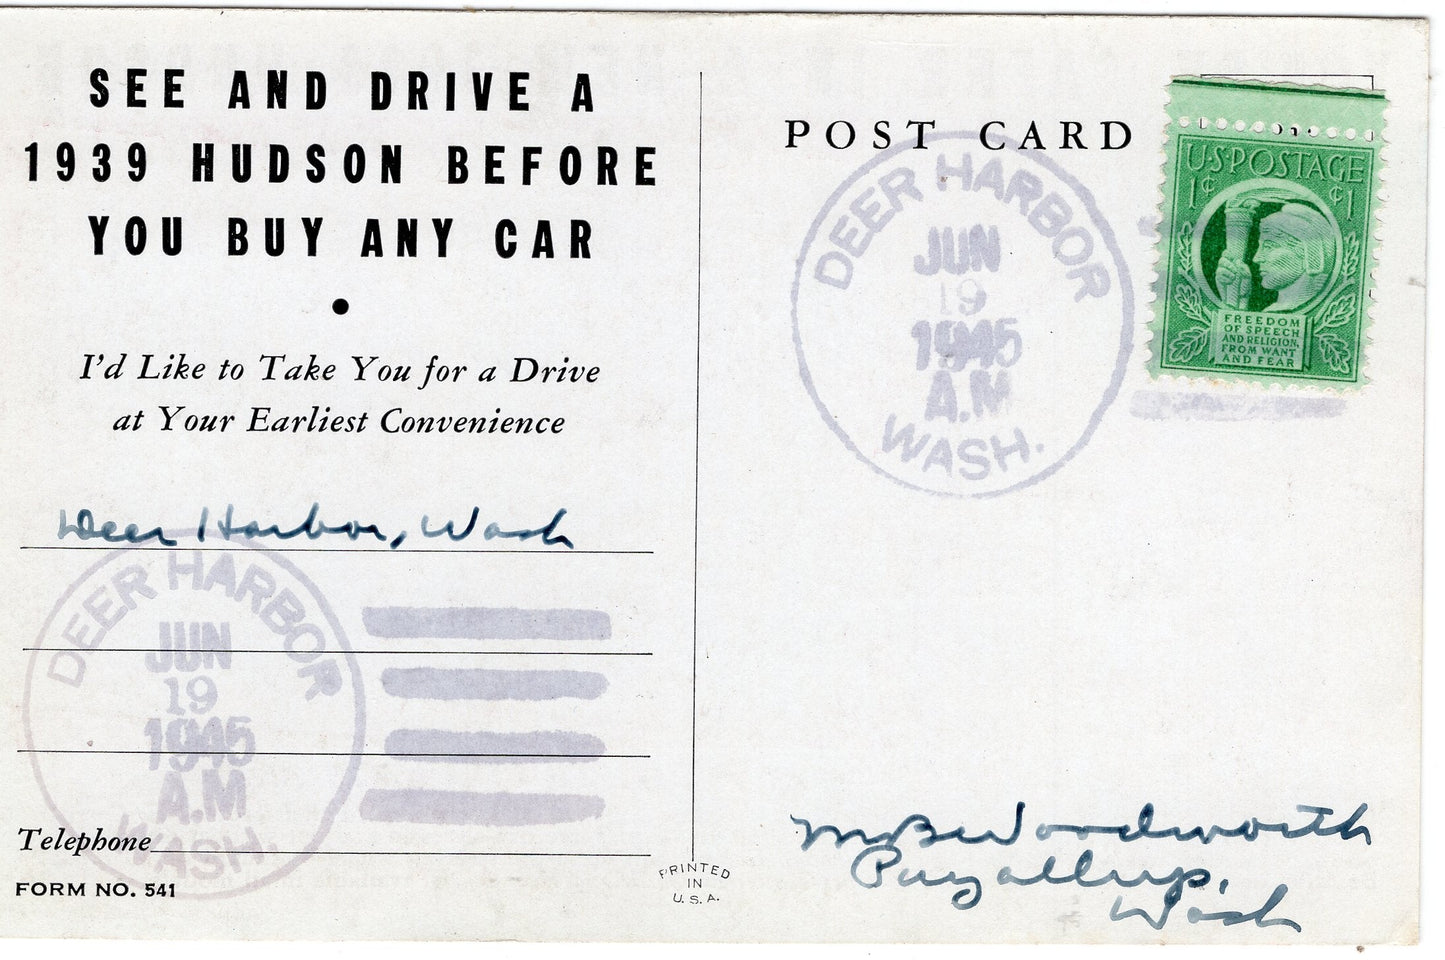 SEE AND DRIVE A
1939 HUDSON BEFORE
YOU BUY ANY CAR
I'd Like to Take You for a Drive
at Your Earliest Convenience
Deer Harbor, Wash
DEER HARBOR
JUN
19
1945
A.M
WASH.
Telephone
FORM NO. 541
PRINTED
IN
U.S.A.
POST CARD
DEER HARBOR
JUN
19
1945
A.M
WASH.
U·S·POSTAGE
1¢ ¢1
FREEDOM
OF SPEECH
AND RELIGION,
FROM WANT
AND FEAR
Woodworth
Puyallup,
Wash